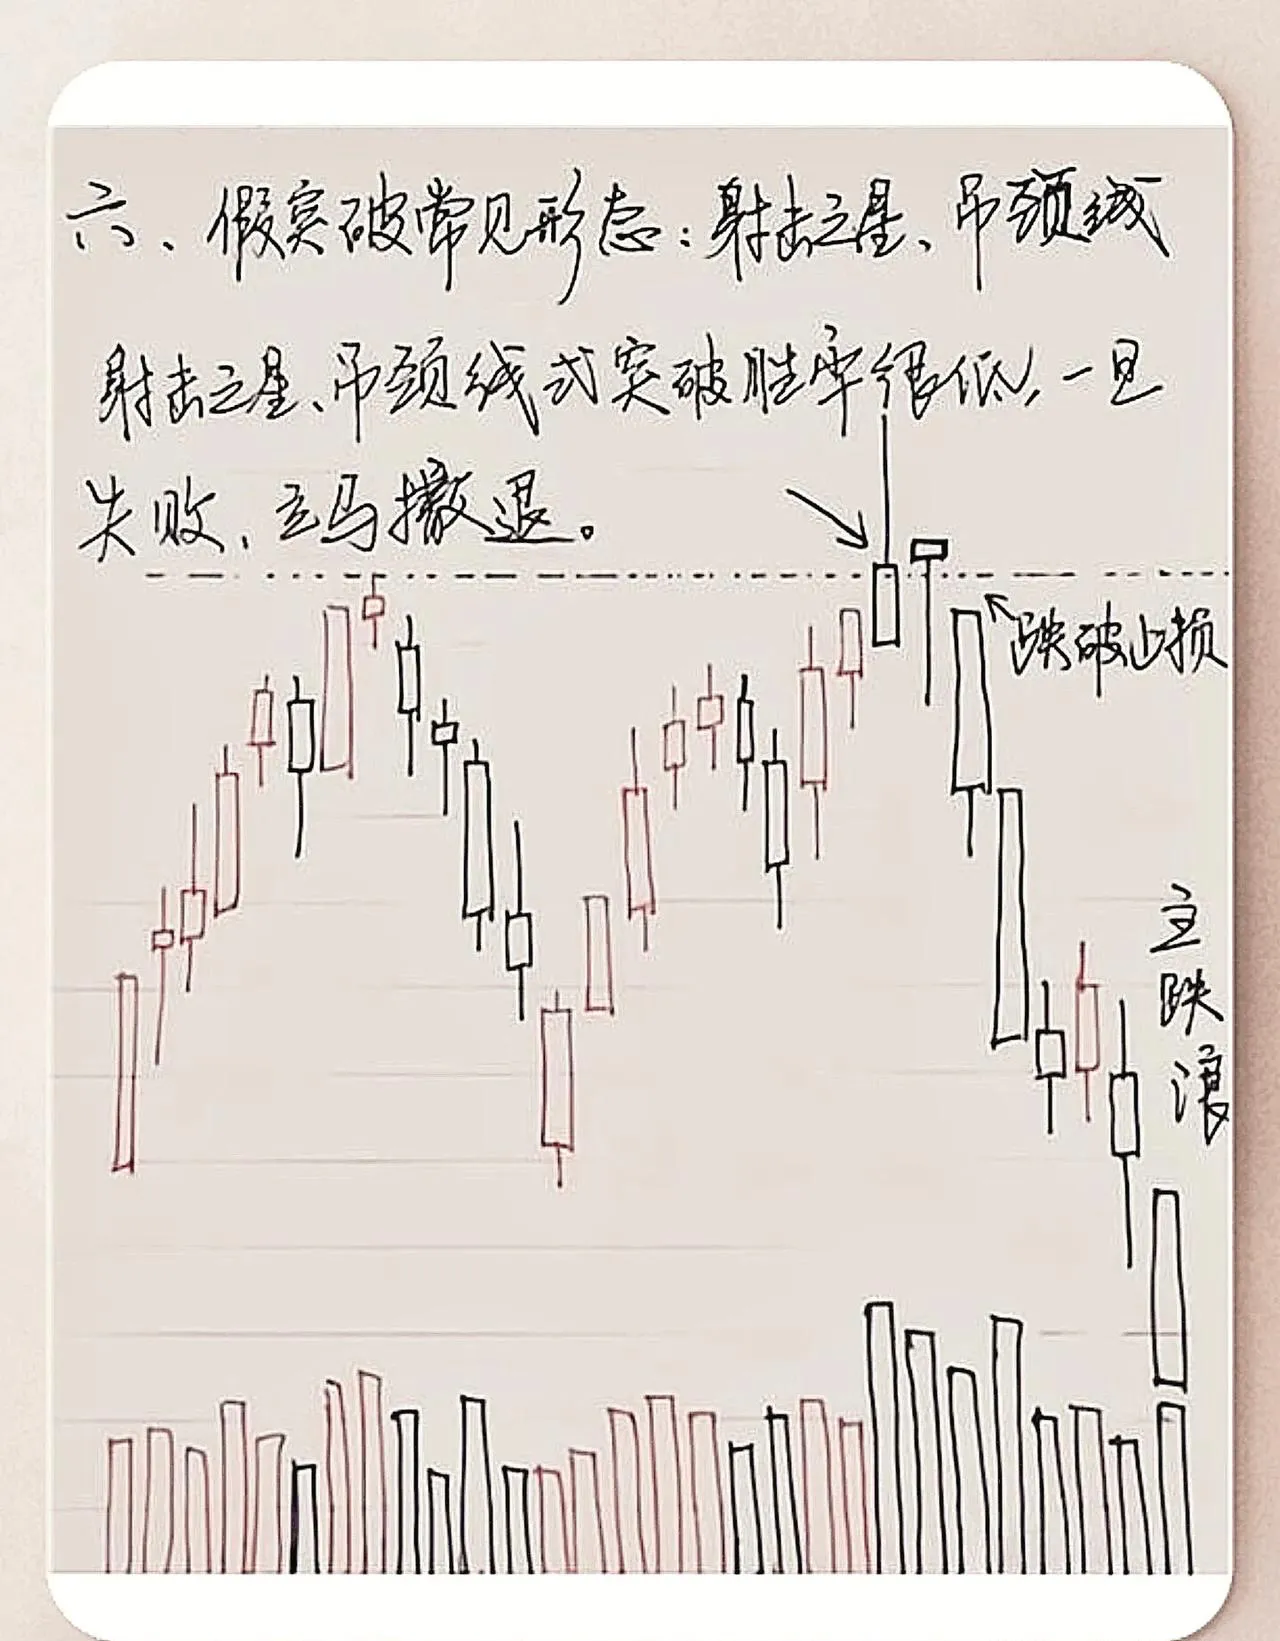 六、假突破常见形态：射击之星、吊颈线
射击之星、吊颈线式突破胜率很低，一旦
失败，立马撤退。
跌破止损
主跌浪